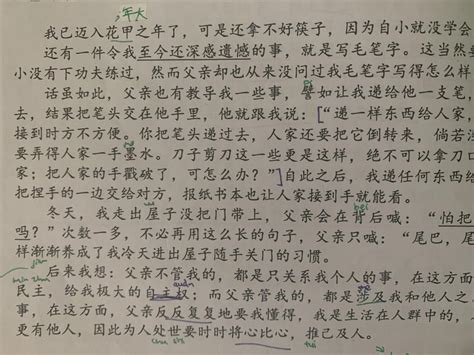 年大
我已迈入花甲之年了，可是还拿不好筷子，因为自小就没学会
还有一件令我至今还深感遗憾的事，就是写毛笔字。这当然
小没有下功夫练过，然而父亲却也从来没问过我毛笔字写得怎么样
话虽如此，父亲也有教导我一些事，譬如让我递给他一支笔，
去，结果把笔头交在他手里，他就跟我说：[“递一样东西给人家，
接到时方不方便。你把笔头递过去，人家还要把它倒转来，倘若
要弄得人家一手墨水。刀子剪刀这一些更是这样，绝不可以拿刀口
家；把人家的手戳破了，可怎么办？”]自此之后，我递任何东西
把捏手的一边交给对方，报纸书本也让人家接到手就能看。
冬天，我走出屋子没把门带上，父亲会在背后喊：“怕把
吗？”次数一多，不必再用这么长的句子，父亲只喊：“尾巴，尾
样渐渐养成了我冷天进出屋子随手关门的习惯。
后来我想：父亲不管我的，都是只关系我个人的事，在这方面
民主，给我极大的自主权；而父亲管我的，都是涉及我和他人之
事，在这方面，父亲反反复复地要我懂得，我是生活在人群中的，
更有他人，因此为人处世要时时将心比心，推己及人。